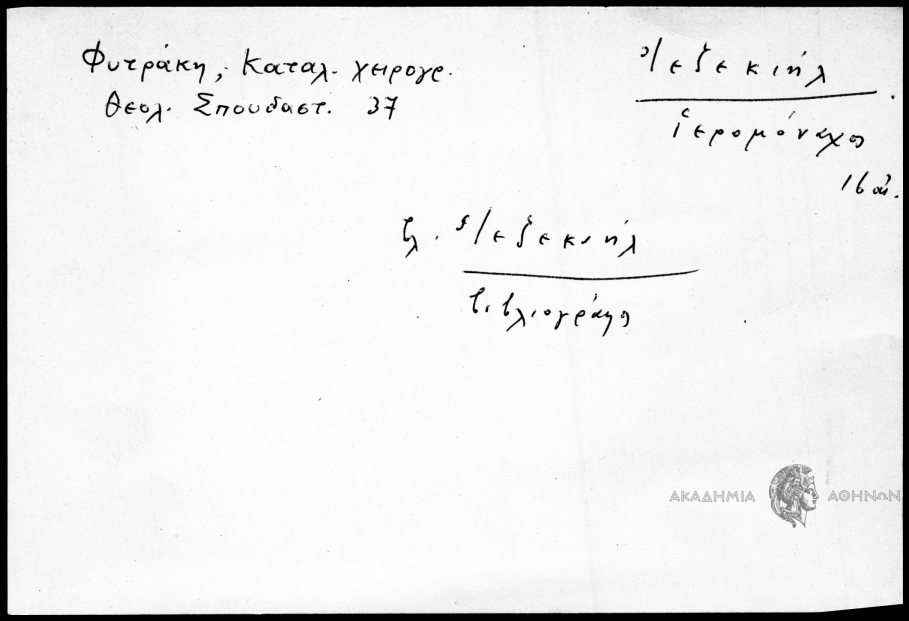 Φυτράκη, Καταλ. χειρογρ.
Θεολ. Σπουδαστ. 37
Ἰεζεκιήλ
ἱερομόναχος
16 αἰ.
βλ. Ἰεζεκιήλ
βιβλιογράφος
ΑΚΑΔΗΜΙΑ ΑΘΗΝΩΝ